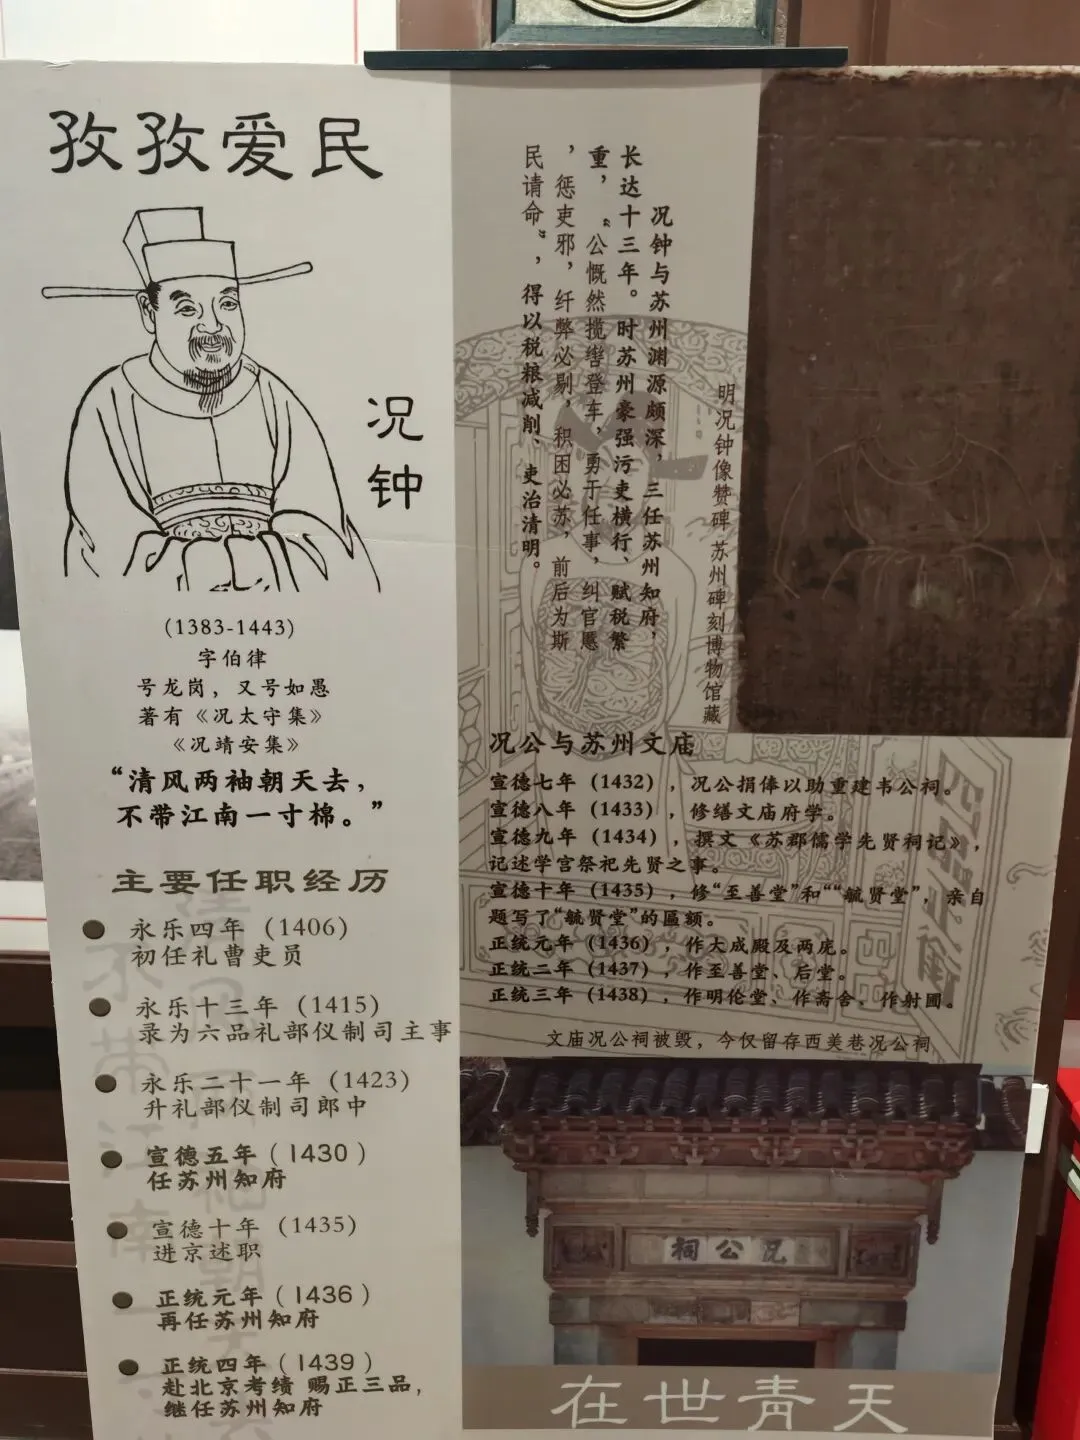 孜孜爱民
况钟
(1383-1443)
字伯律
号龙岗，又号如愚
著有《况太守集》
《况靖安集》
“清风两袖朝天去，
不带江南一寸棉。”
主要任职经历
永乐四年（1406）
初任礼曹吏员
永乐十三年（1415）
录为六品礼部仪制司主事
永乐二十一年（1423）
升礼部仪制司郎中
宣德五年（1430）
任苏州知府
宣德十年（1435）
进京述职
正统元年（1436）
再任苏州知府
正统四年（1439）
赴北京考绩 赐正三品，
继任苏州知府
况钟与苏州渊源颇深，三任苏州知府，
长达十三年。时苏州豪强污吏横行、赋税繁
重，“公慨然揽辔登车，勇于任事，纠官慝
，惩吏邪，纤弊必剔，积困必苏，前后为斯
民请命”，得以税粮减削、吏治清明。
明况钟像赞碑 苏州碑刻博物馆藏
况公与苏州文庙
宣德七年（1432），况公捐俸以助重建韦公祠。
宣德八年（1433），修缮文庙府学。
宣德九年（1434），撰文《苏郡儒学先贤祠记》，
记述学宫祭祀先贤之事。
宣德十年（1435），修“至善堂”和““毓贤堂”，亲自
题写了“毓贤堂”的匾额。
正统元年（1436），作大成殿及两庑。
正统二年（1437），作至善堂、后堂。
正统三年（1438），作明伦堂、作斋舍、作射圃。
文庙况公祠被毁，今仅留存西美巷况公祠
祠公况
在世青天